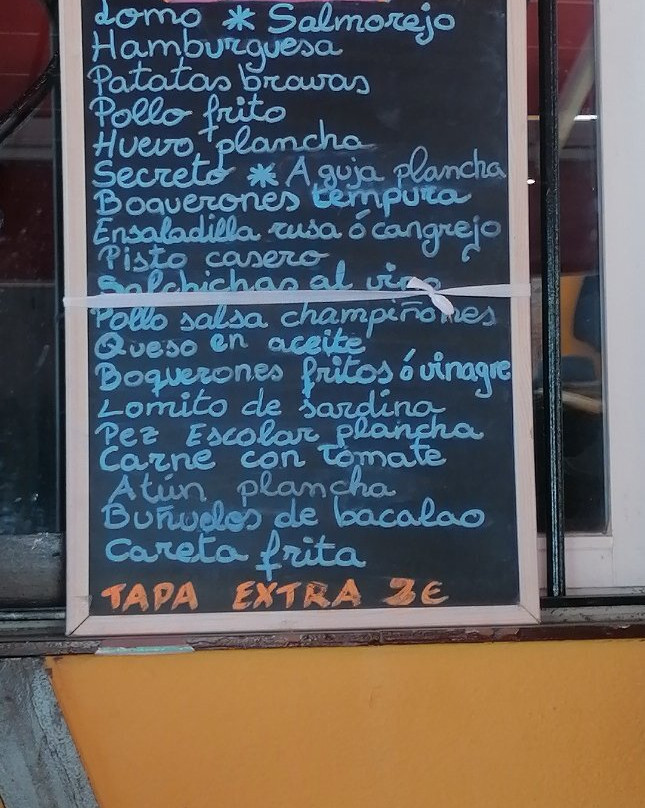 Lomo * Salmorejo
Hamburguesa
Patatas bravas
Pollo frito
Huevo plancha
Secreto * Aguja plancha
Boquerones tempura
Ensaladilla rusa ó cangrejo
Pisto casero
Salchichas al vino
Pollo salsa champiñones
Queso en aceite
Boquerones fritos ó vinagre
Lomito de sardina
Pez Escolar plancha
Carne con Tomate
Atún plancha
Buñuelos de bacalao
Careta frita
TAPA EXTRA 3€